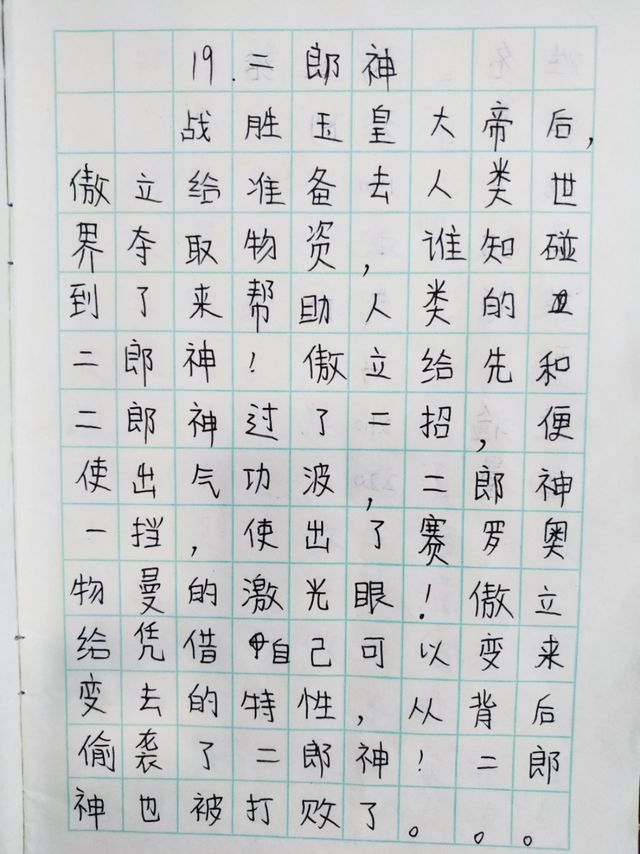 19.二郎神
战胜玉皇大帝后,
傲立给准备去人类世
界夺取物资,谁知碰
到了来帮助人类的
二郎神!傲立给先和
二郎神过了二招,便
使出气功波,二郎神
一挡,使出了赛罗奥
物曼的激光眼!傲立
给凭借自己可以变来
变去的特性,从背后
偷袭了二郎神!二郎
神也被打败了。。。